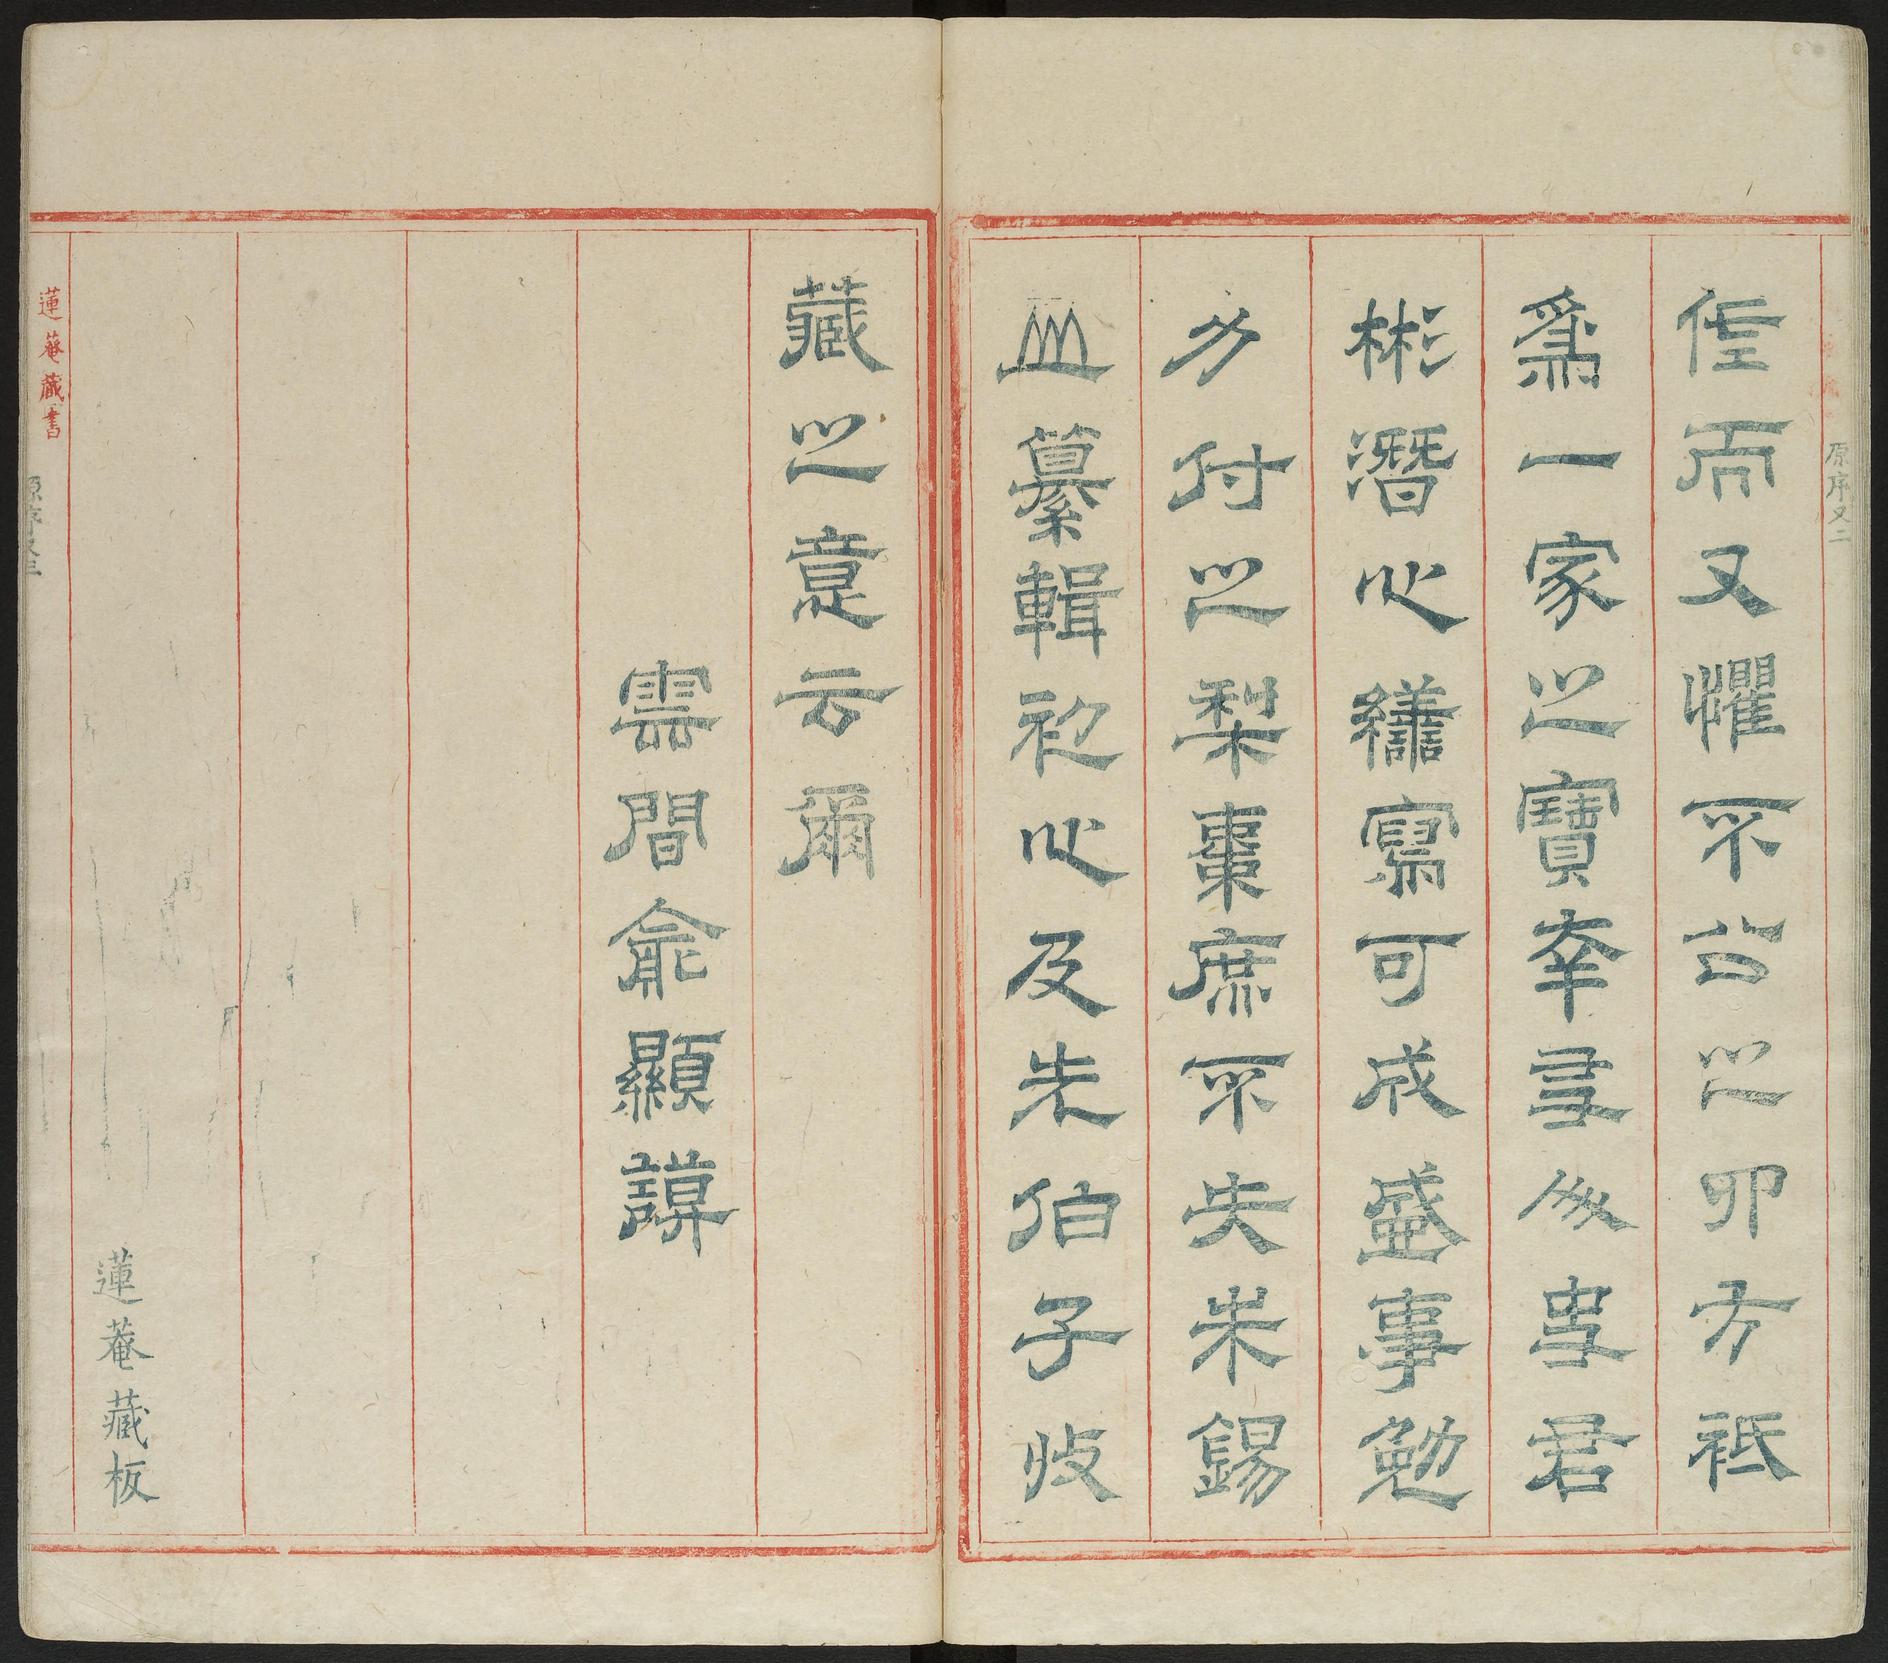 原序又二
任而又懼不公之四方祗
為一家之寶幸君
彬潛心繕寫可成盛事勉
力付之梨棗庶不失朱錫
山纂輯初心及先伯子收
藏之意云爾
雲間俞顯謨
蓮菴藏板
蓮菴藏書
原序又三